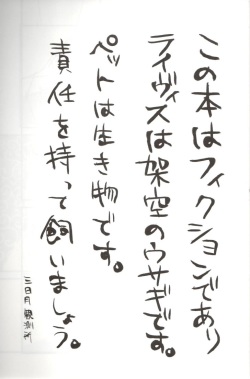 この本はフィクションであり
ティヴィズは架空のウサギです。
ペットは生き物です。
責任を持って飼いましょう。
三日月観測所